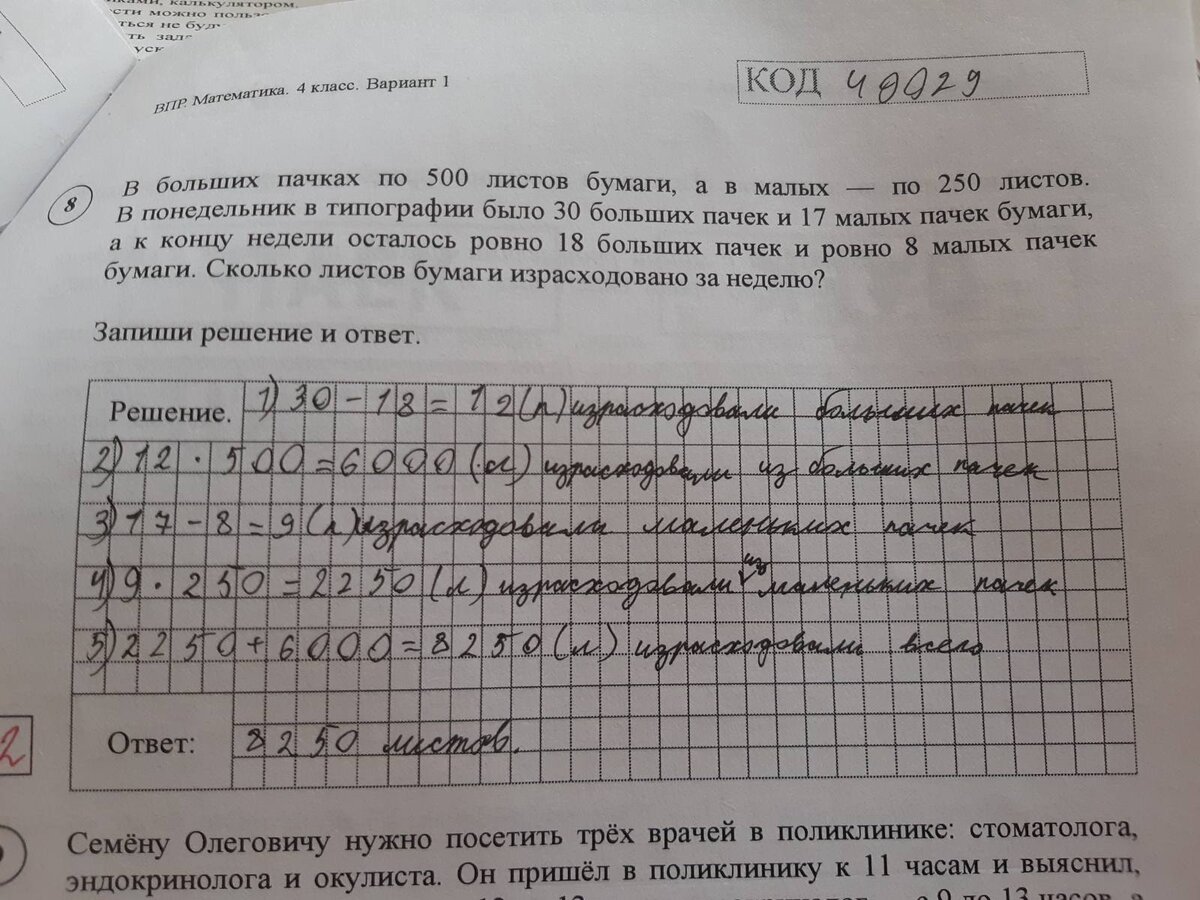 ками, калькулятором.
сти можно польз
ться не буд
ть зад
уск
ВПР. Математика. 4 класс. Вариант 1
КОД 40029
8
В больших пачках по 500 листов бумаги, а в малых — по 250 листов.
В понедельник в типографии было 30 больших пачек и 17 малых пачек бумаги,
а к концу недели осталось ровно 18 больших пачек и ровно 8 малых пачек
бумаги. Сколько листов бумаги израсходовано за неделю?
Запиши решение и ответ.
Решение. 1) 30 - 18 = 12 (п) израсходовали больших пачек
2) 12 · 500 = 6000 (л) израсходовали из больших пачек
3) 17 - 8 = 9 (п) израсходовали маленьких пачек
4) 9 · 250 = 2250 (л) израсходовали из маленьких пачек
5) 2250 + 6000 = 8250 (л) израсходовали всего
2
Ответ: 8250 листов.
Семёну Олеговичу нужно посетить трёх врачей в поликлинике: стоматолога,
эндокринолога и окулиста. Он пришёл в поликлинику к 11 часам и выяснил,
с 9 до 13 часов, а